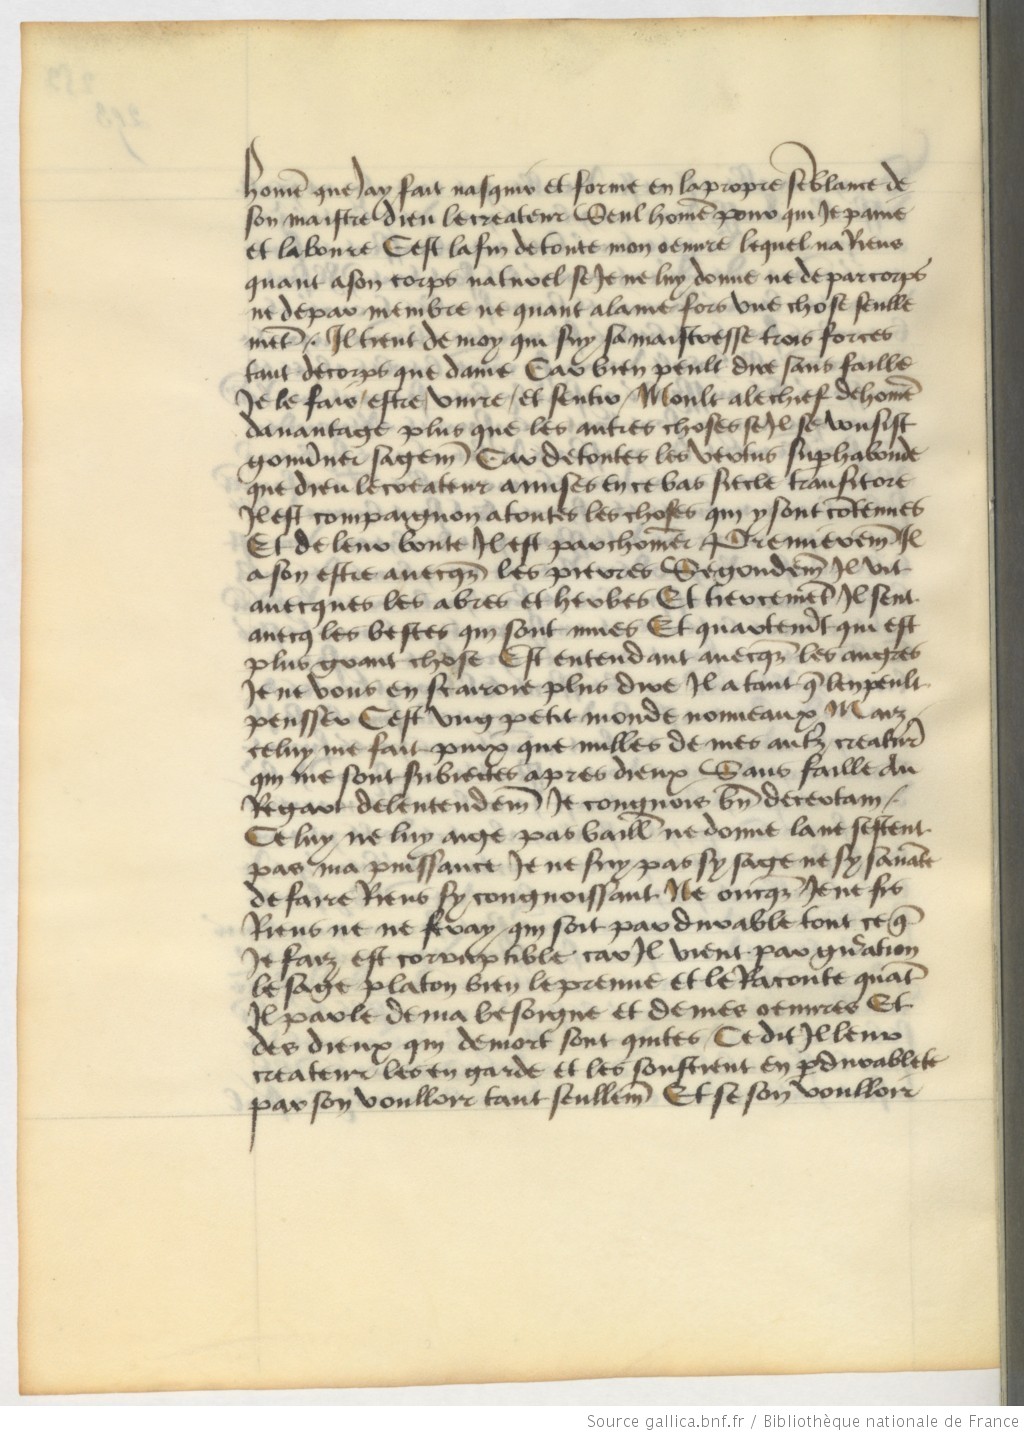 homē que Jay fait nasquir et forme en la propre sēblance de
son maistre dieu le createur Seul homē pour qui Je paine
et laboure Cest la fin de toute mon oeuure lequel na Riens
quant a son corps naturel se Je ne luy donne ne de par corps
ne de par membre ne quant a lame fors vne chose seulle
mēt / Il tient de moy qui suy sa maistresse trois forces
tant de corps que dame Car bien peult dire sans faille
Je le fais / estre / viure / et sentir / Moult a le chief de homē
dauantage plus que les autres choses se Il se vousist
gouuīner sagem̄ Car de toutes les vertus suphabonde
que dieu le createur a mises en ce bas siecle transitore
Il est compaignon a toutes les choses qui y sont cōtenues
Et de leur bonte Il est parchonīer Premierem̄ Il
a son estre auecqz les pierres Segondem̄ Il vit
auecques les abres et herbes Et tiercemēt Il sent
auecq les bestes qui sont mues Et quartemēt qui est
plus grant chose Est entendant auecqz les anges
Je ne vous en scairoie plus dire Il a tant q̄ len peult
pensser Cest vng petit monde nouueaux Maiz
celuy me fait pirx que nulles de mes autz creatur̄
qui me sont subiectes apres dieux Sans faille Au
Regart de lentendem̄ Je congnois bn̄ de certain /
Ce luy ne luy aige pas baill̄ ne donne la ne sestent
pas ma puissance Je ne suy pas sy sage ne sy sauāte
de faire Riens sy congnoissant Ne oncqz Je ne fis
Riens ne ne feray qui soit pardurable tout ce q̄
Je faiz est corruptible car Il vient par gn̄ration
le sage platon bien le preuue et le Raconte quāt
Il parle de ma besoigne et de mes oeuures Et
des dieux qui de mort sont quites / Ce dit Il leur
createur les en garde et les soustient en pdurablete
par son voulloir tant seullem̄ Et se son voulloir
Source gallica.bnf.fr / Bibliothèque nationale de France